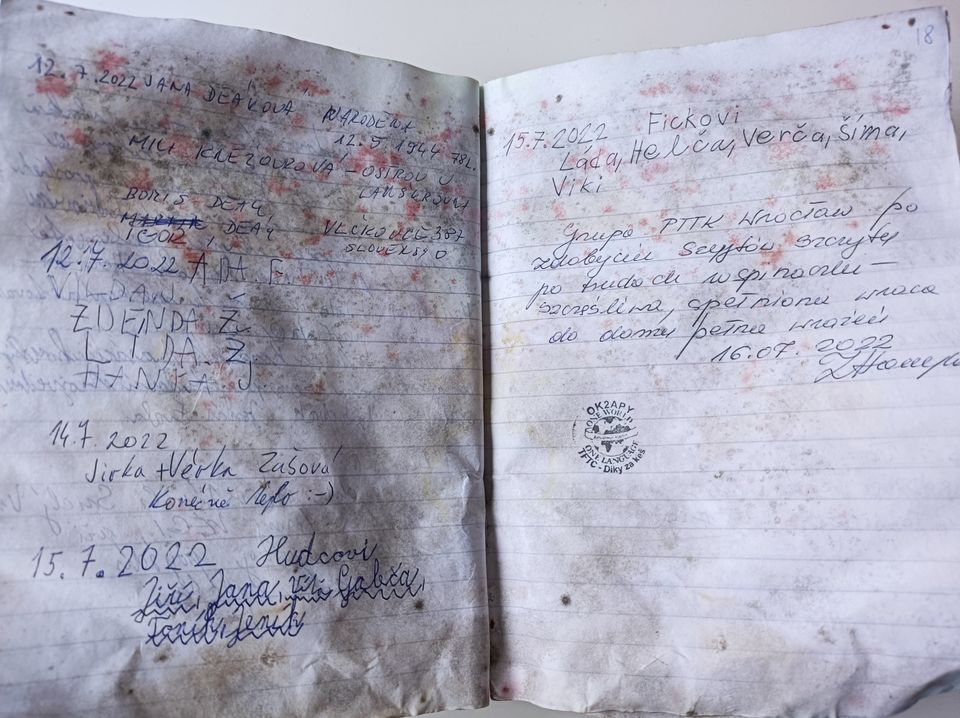 12.7.2022 JANA DEÁKOVÁ
NARODENÁ
12.5.1944 78L.
OSTROV U
LANŠKROUNA
BORIS DEÁK
IGOR DEÁK
VLČKOVCE 387
SLOVENSKO
12.7.2022 ADA F.
ZDENDA Ž.
LÍDA Ž
HANKA J
14.7 2022
Jirka + Věrka Zášova
Konečně teplo :-)
15.7.2022 Hudcovi
Jiří, Jana, Gabča,
Jeník
18
15.7.2022 Fickovi
Láďa, Helča, Verča, Šíma,
Viki
Grupa PTTK Wrocław po
zdobyciu szczytów szczyty
po trudach wspinaczki –
szczęśliwa, spełniona wraca
do domu pełna wrażeń
16.07.2022
OK2APY
ONE WORLD
ONE LANGUAGE
TFTC - Díky za keš